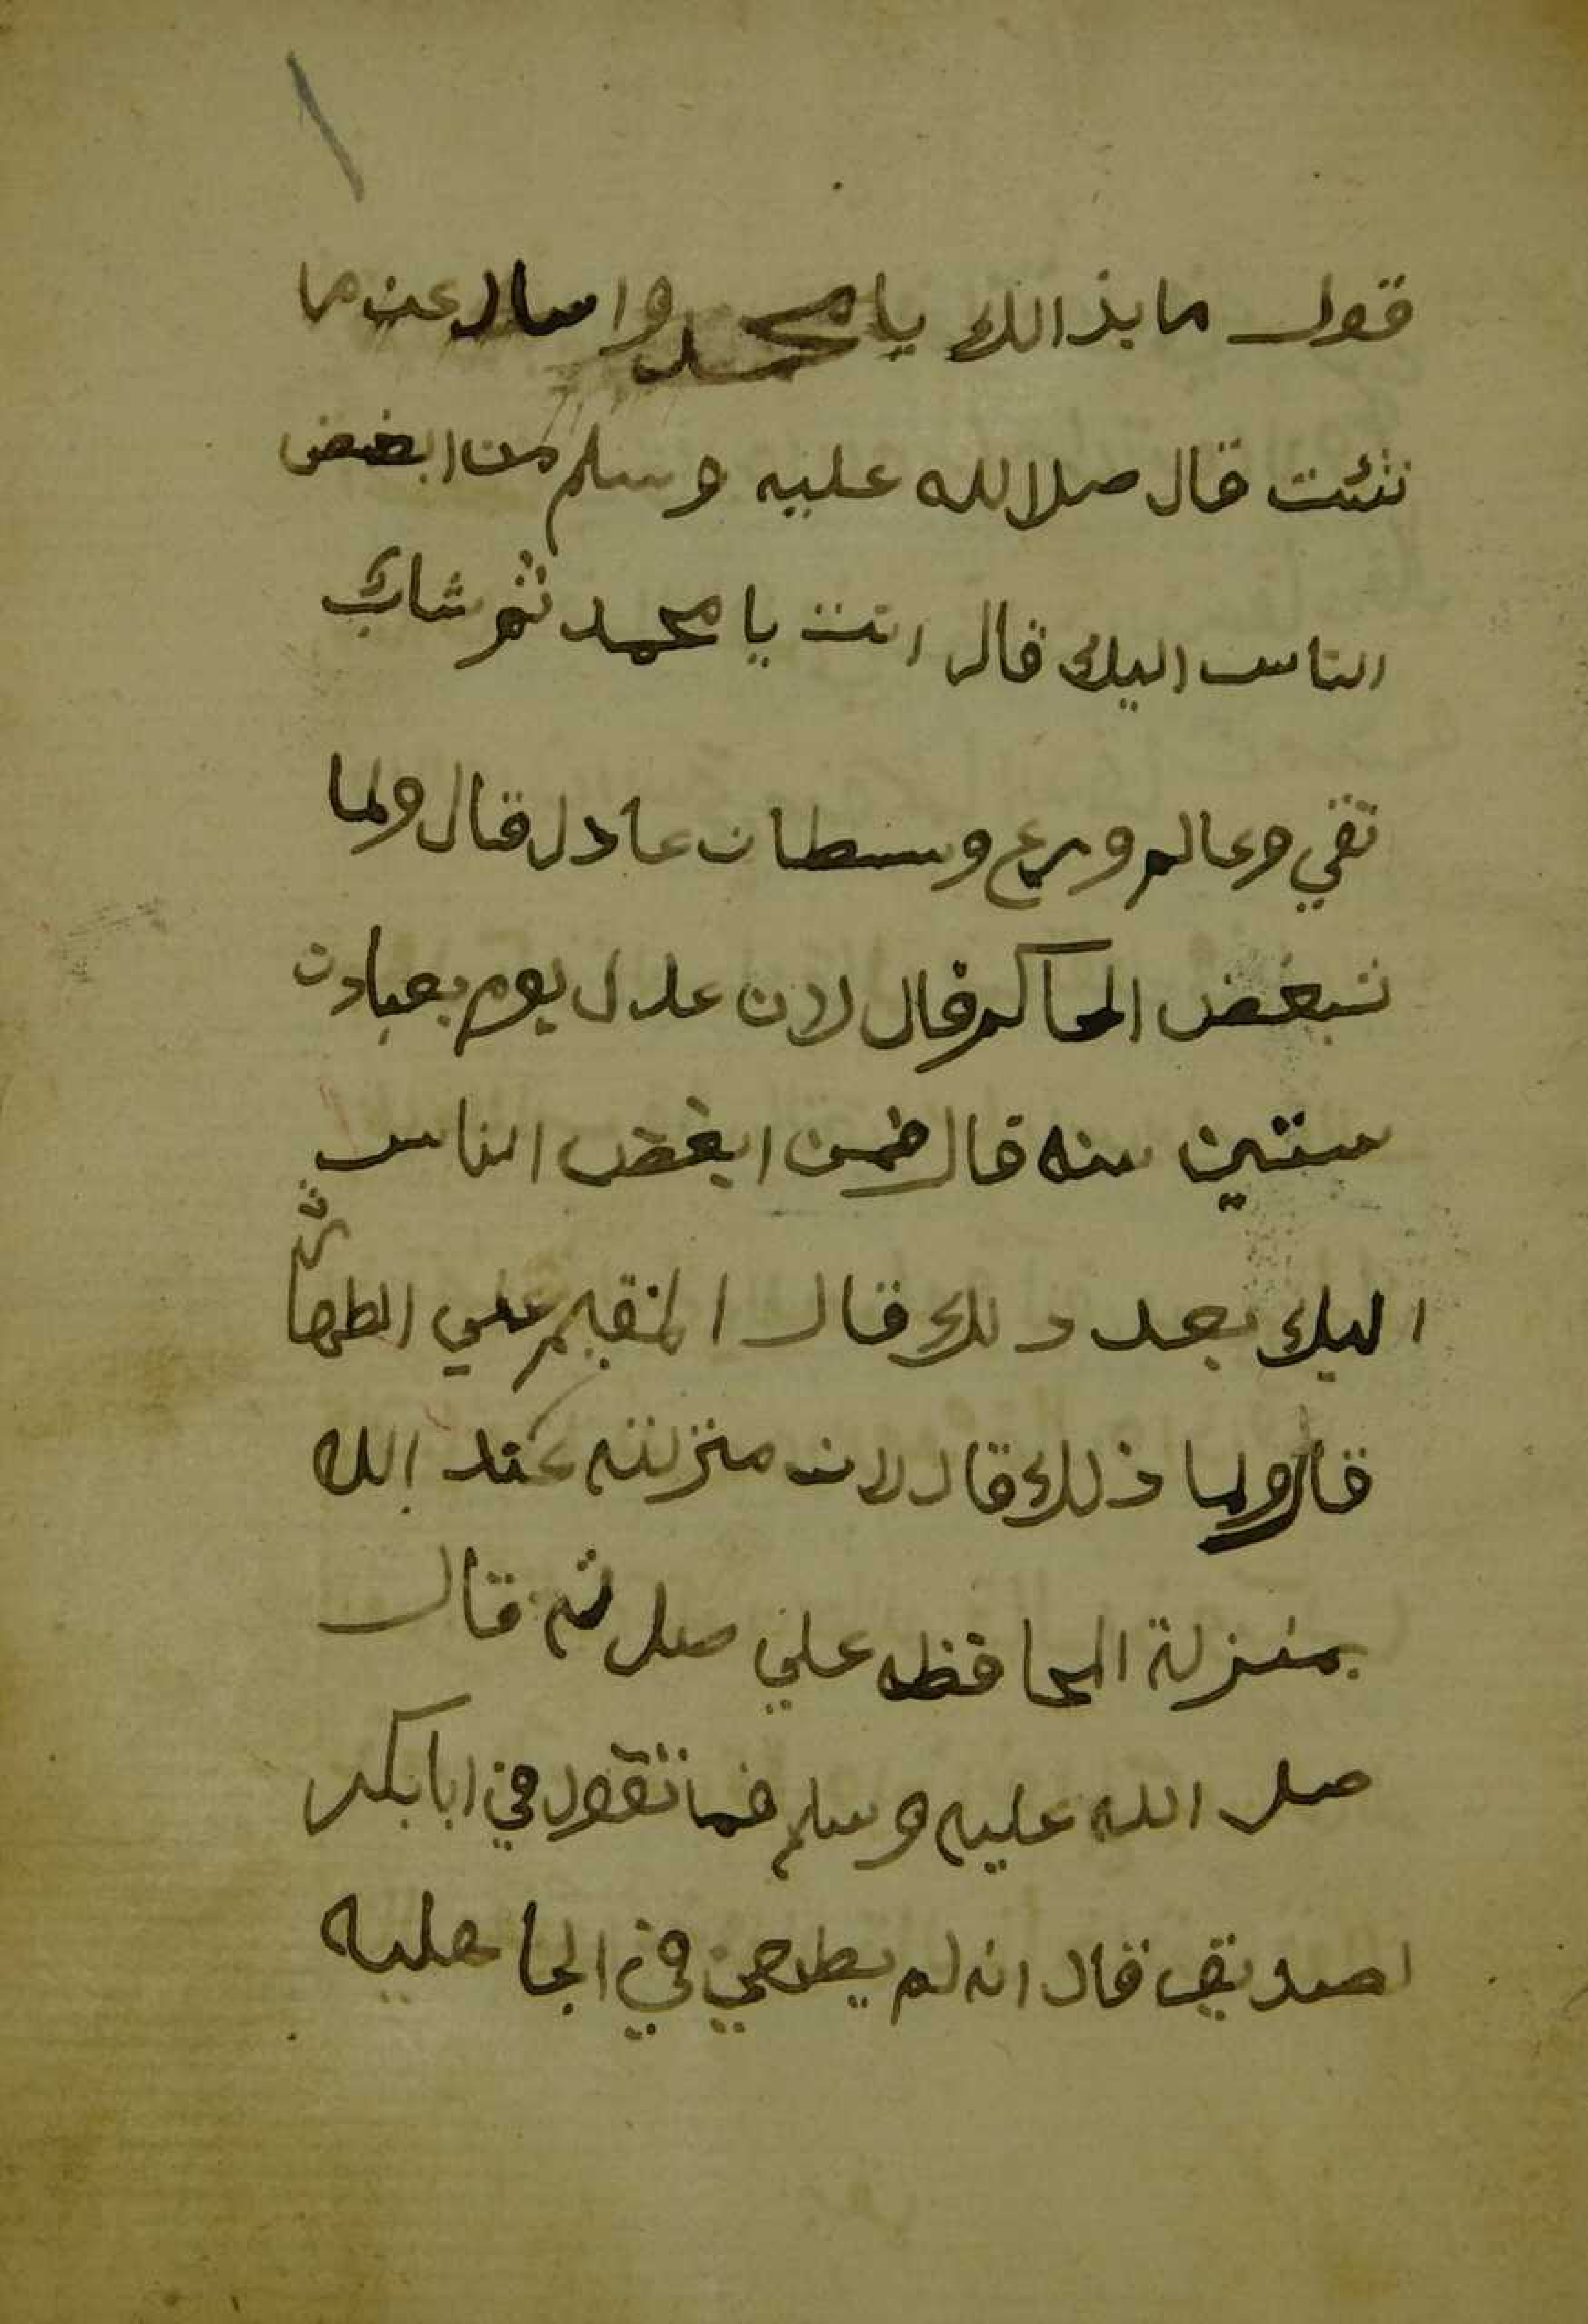 قول ما بذالك يا محمد واسال عن ما
شئت قال صلا لله عليه وسلم من ابغض
الناس اليك قال انت يا محمد ثم شاب
تقي وعالم ورع وسطان عادل قال ولما
تبغض الحاكم قال لان عدل يوم بعبادت
ستين سنه قال فمن ابغض الناس
اليك بعد دلك قال المقيم علي الطهارة
قال ولما ذلك قال لان منزلته عند الله
بمنزلة المحافظه علي صل ثم قال
صل الله عليه وسلم فما تقول في ابا بكر
اصديق قال انه لم يطعني في الجاهليه